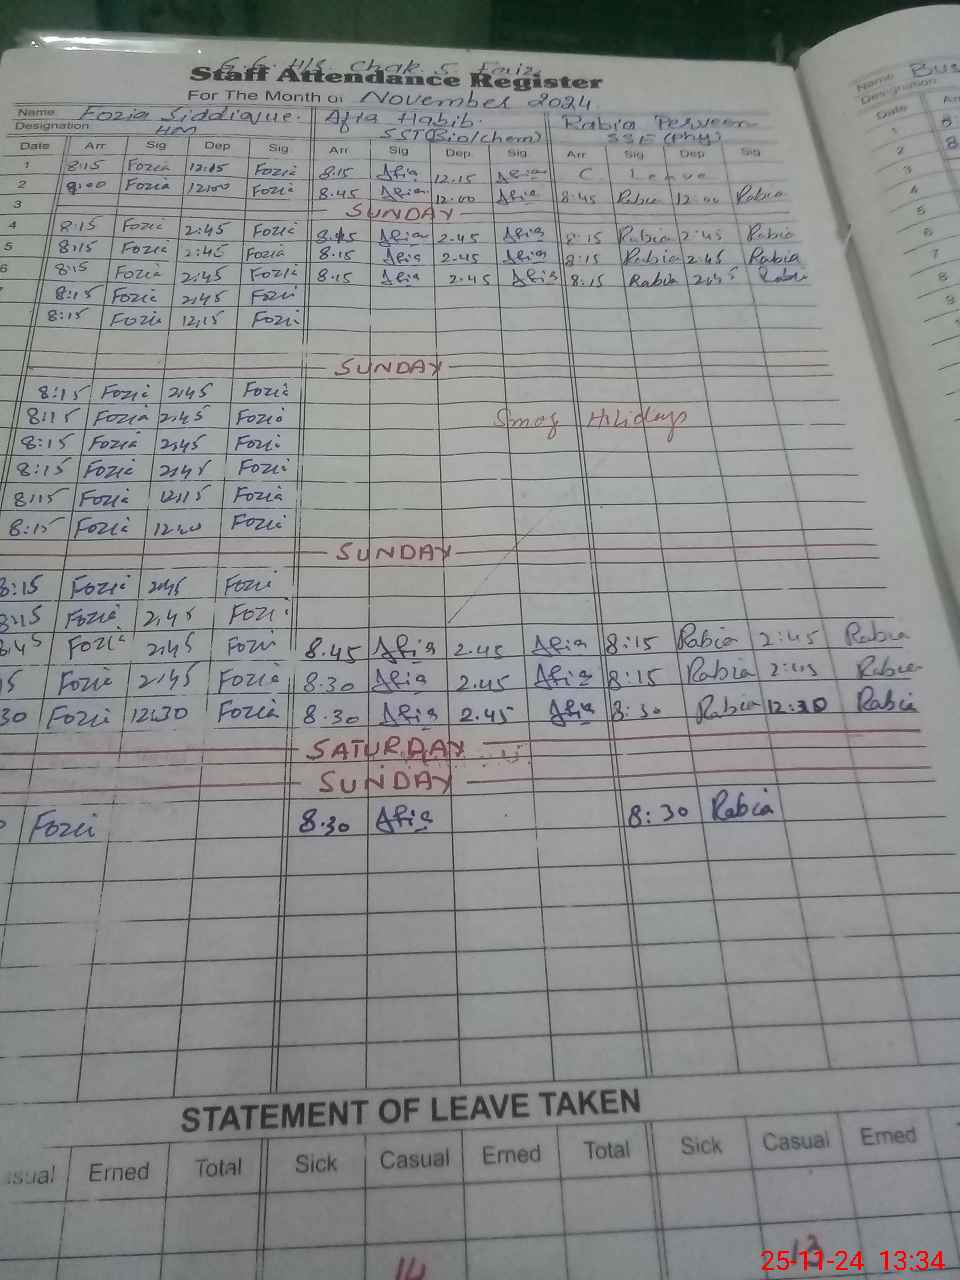 G.G. H/S. Chak. 5 Faiz.
Staff Attendance Register
For The Month Of November 2024.
Name Fozia Siddique. Afia Habib. Rabia Perveen
Designation HM SST(Bio/chem) SSE (Phy)
Date Arr Sig Dep Sig Arr Sig Dep Sig Arr Sig Dep Sig
1 8:15 Fozia 12:15 Fozia 8:15 Afia 12.15 Afia C Leave
2 9:00 Fozia 12:00 Fozia 8.45 Afia 12.00 Afia 8:45 Rabia 12:00 Rabia
3 SUNDAY
4 8:15 Fozia 2:45 Fozia 8.45 Afia 2.45 Afia 8:15 Rabia 2:45 Rabia
5 8:15 Fozia 2:45 Fozia 8.15 Afia 2.45 Afia 8:15 Rabia 2:45 Rabia
6 8:15 Fozia 2:45 Fozia 8.15 Afia 2.45 Afia 8:15 Rabia 2:45 Rabia
8:15 Fozia 2:45 Fozi
8:15 Fozia 12:15 Fozi
SUNDAY
8:15 Fozia 2:45 Fozia
8:15 Fozia 2:45 Fozia
Smog Hilidays
8:15 Fozia 2:45 Fozi
8:15 Fozia 2:45 Fozi
8:15 Fozia 12:15 Fozia
8:15 Fozia Fozi
SUNDAY
8:15 Fozi 2:45 Fozi
8:15 Fozia 2,45 Fozi
8,45 Fozi 2:45 Fozi 8.45 Afia 2.45 Afia 8:15 Rabia 2:45 Rabia
5 Fozia 2:45 Fozia 8.30 Afia 2.45 Afia 8:15 Rabia 2:45 Rabia
30 Fozi 12:30 Fozia 8.30 Afia 2.45 Afia 8:30 Rabia 12:30 Rabia
SATURDAY
SUNDAY
Fozi 8.30 Afia 8:30 Rabia
STATEMENT OF LEAVE TAKEN
asual Erned Total Sick Casual Erned Total Sick Casual Erned
14 13
Name Bus
Designation
Date Arr
1
2
3
4
5
6
7
8
9
25-11-24 13:34